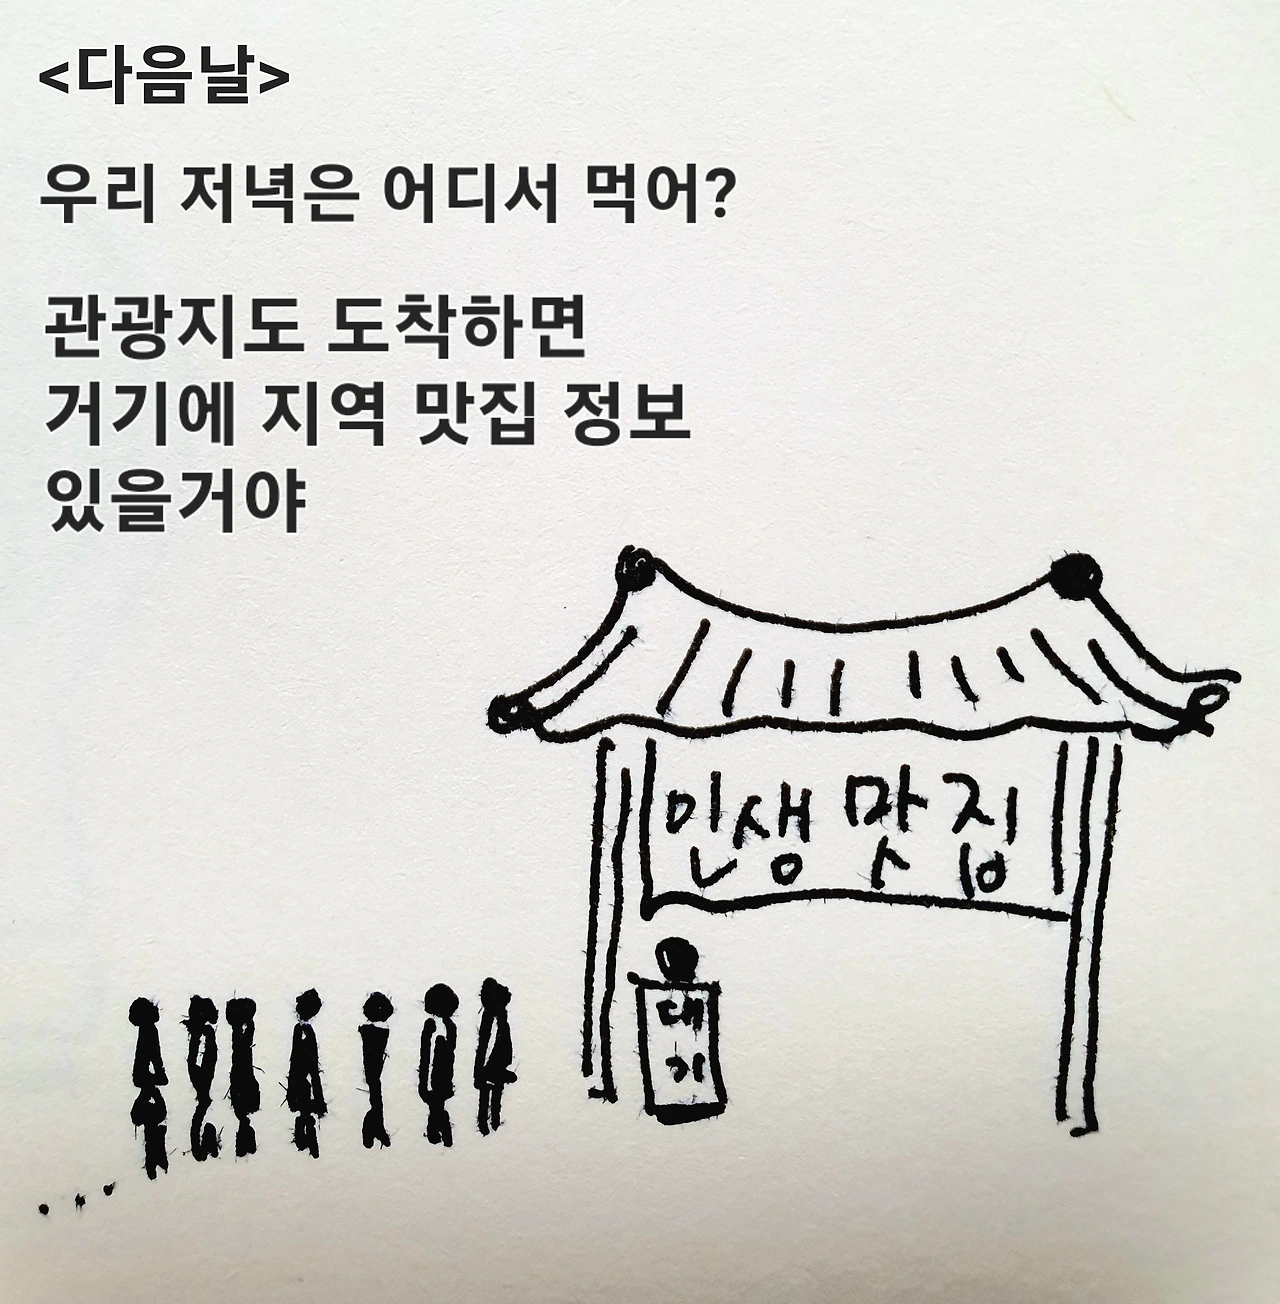 <다음날>
우리 저녁은 어디서 먹어?
관광지도 도착하면
거기에 지역 맛집 정보
있을거야
인생 맛집
대
기